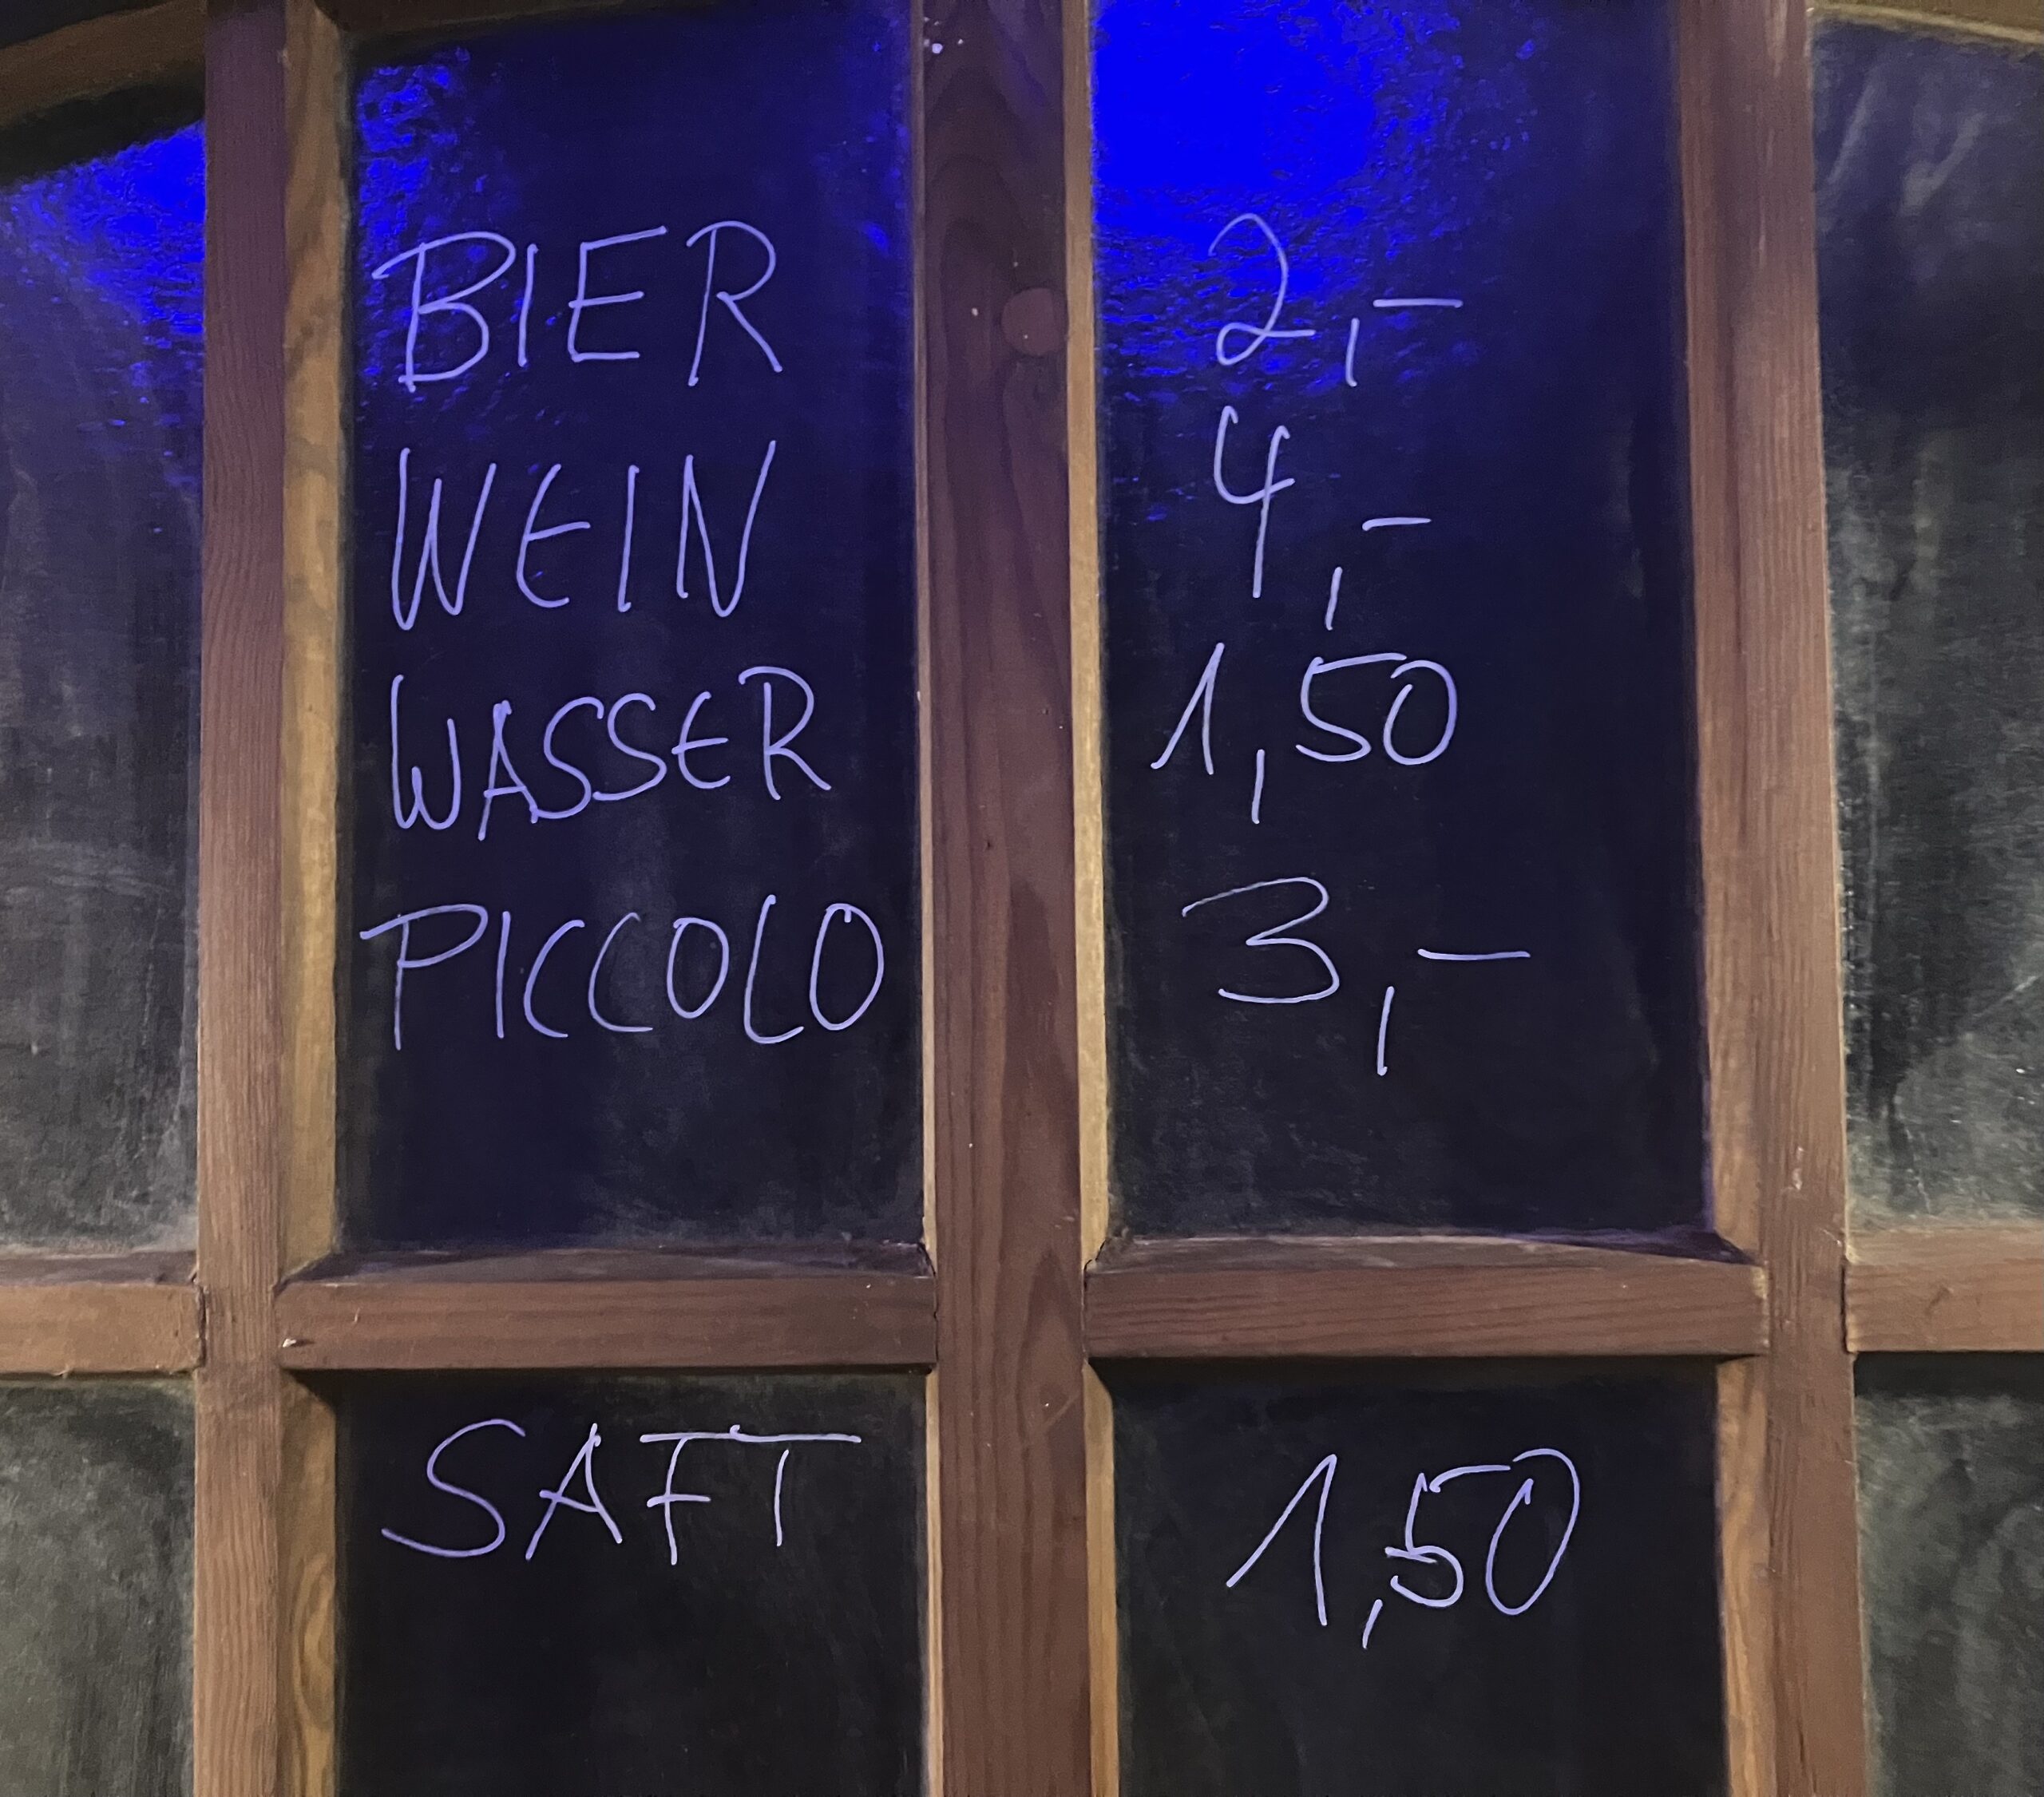 BIER 2,-
WEIN 4,-
WASSER 1,50
PICCOLO 3,-
SAFT 1,50